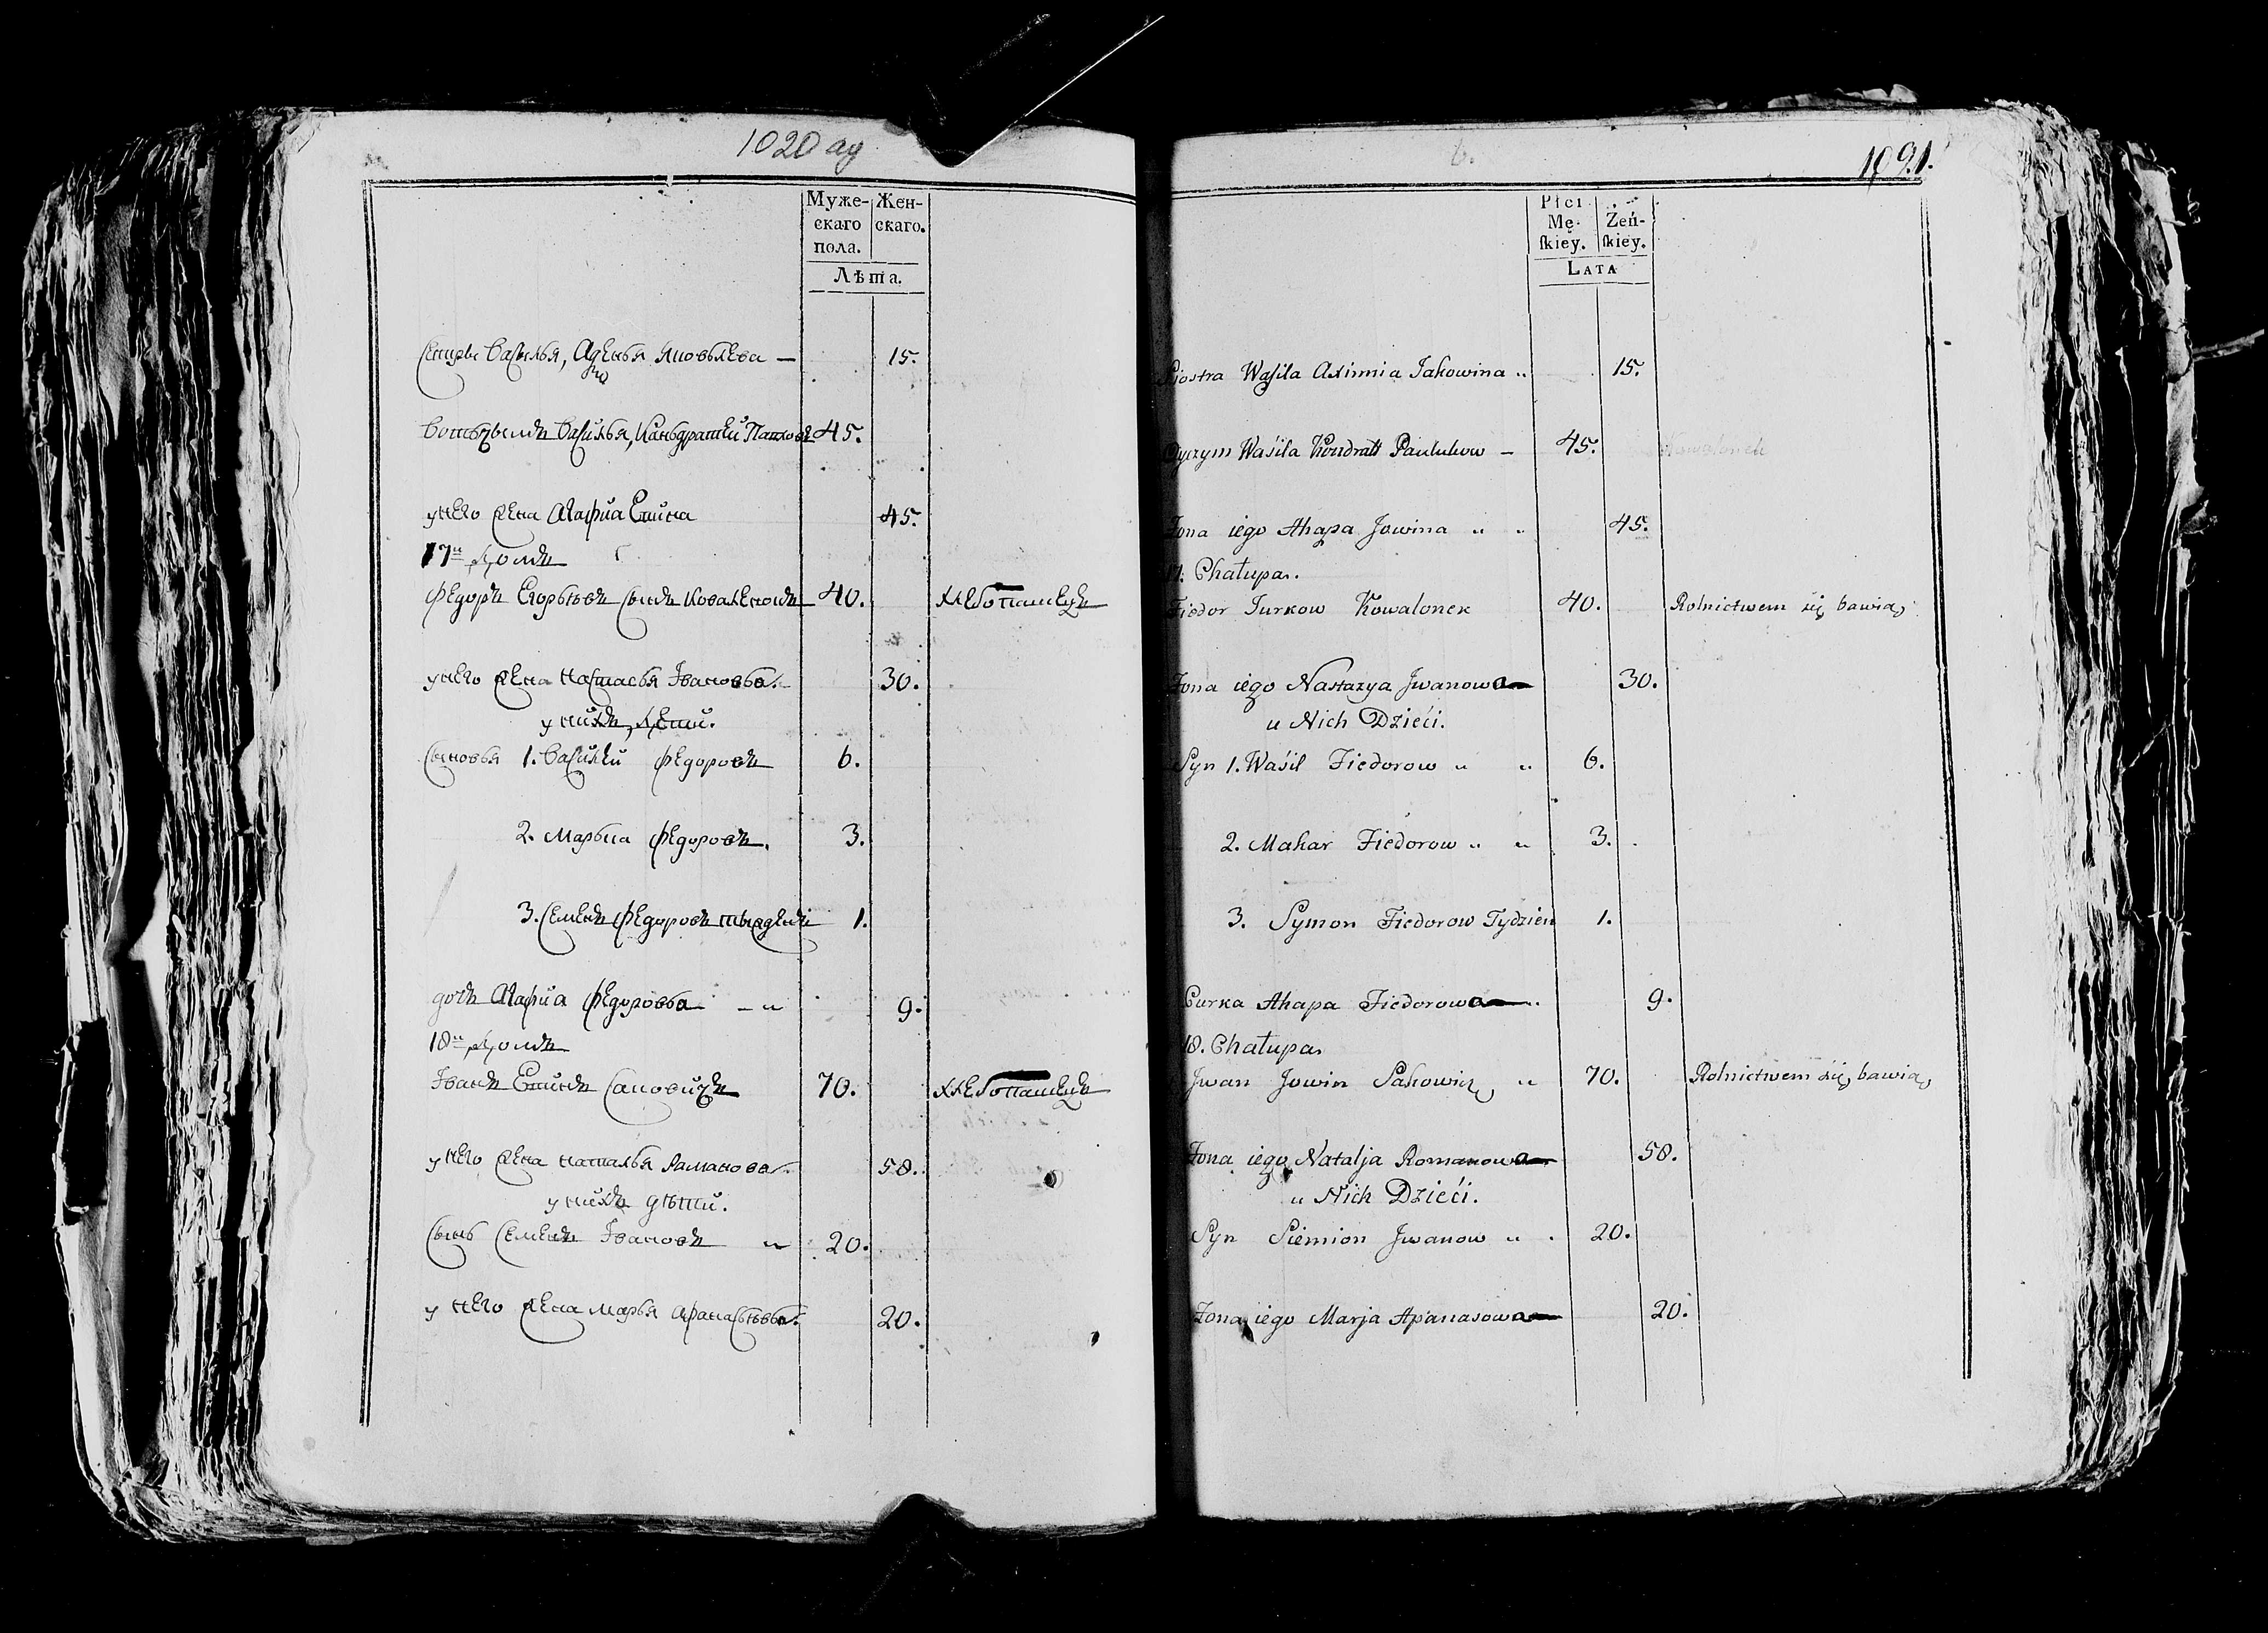 1020 ад
Муже-
скаго
пола.
Жен-
скаго.
Лѣта.
Сестра Василья, Аѯенья Яковлева — 15.
Вотчымъ Василья, Каньдратей Павловъ 45.
у него жена Агафиа Емина 45.
17й Домъ
Федоръ Егорьевъ сынъ Коваленокъ 40. хлебопашецъ
у него жена Настасья Ивановва. 30.
у нихъ дети.
Сыновья 1. Василей Федоровъ 6.
2. Марька Федоровъ. 3.
3. Семенъ Федоровъ 1.
дочь Агафиа Федоровва 9.
18й Домъ
Иванъ Саковичъ 70. хлебопашецъ
у него жена Наталья Раманова. 58.
у нихъ дѣти.
Сынъ Семенъ Ивановъ 20.
у него жена Марья Афанасьевва. 20.
6.
Płci
Mę-
skiey.
Żeń-
skiey.
LATA
Siostra Wasila Axinnia Jakowina „ 15.
Oyczym Waśila Kondratt Paulukow — 45. Kowalonek
Żona iego Ahapa Jowina „ „ 45.
17. Chałupa.
Fiedor Jurkow Kowalonek 40. Rolnictwem się bawią
Żona iego Nastazya Jwanowa 30.
u Nich Dzieći.
Syn 1. Waśil Fiedorow „ „ 6.
2. Makar Fiedorow „ „ 3.
3. Symon Fiedorow Tydzień 1.
Curka Ahapa Fiedorowa 9.
18. Chałupa
Jwan Jowin Sakowicz „ 70. Rolnictwem się bawią
Żona iego Natalja Romanowa 58.
u Nich Dzieći.
Syn Siemion Jwanow „ 20.
Żona iego Marja Apanasowa 20.